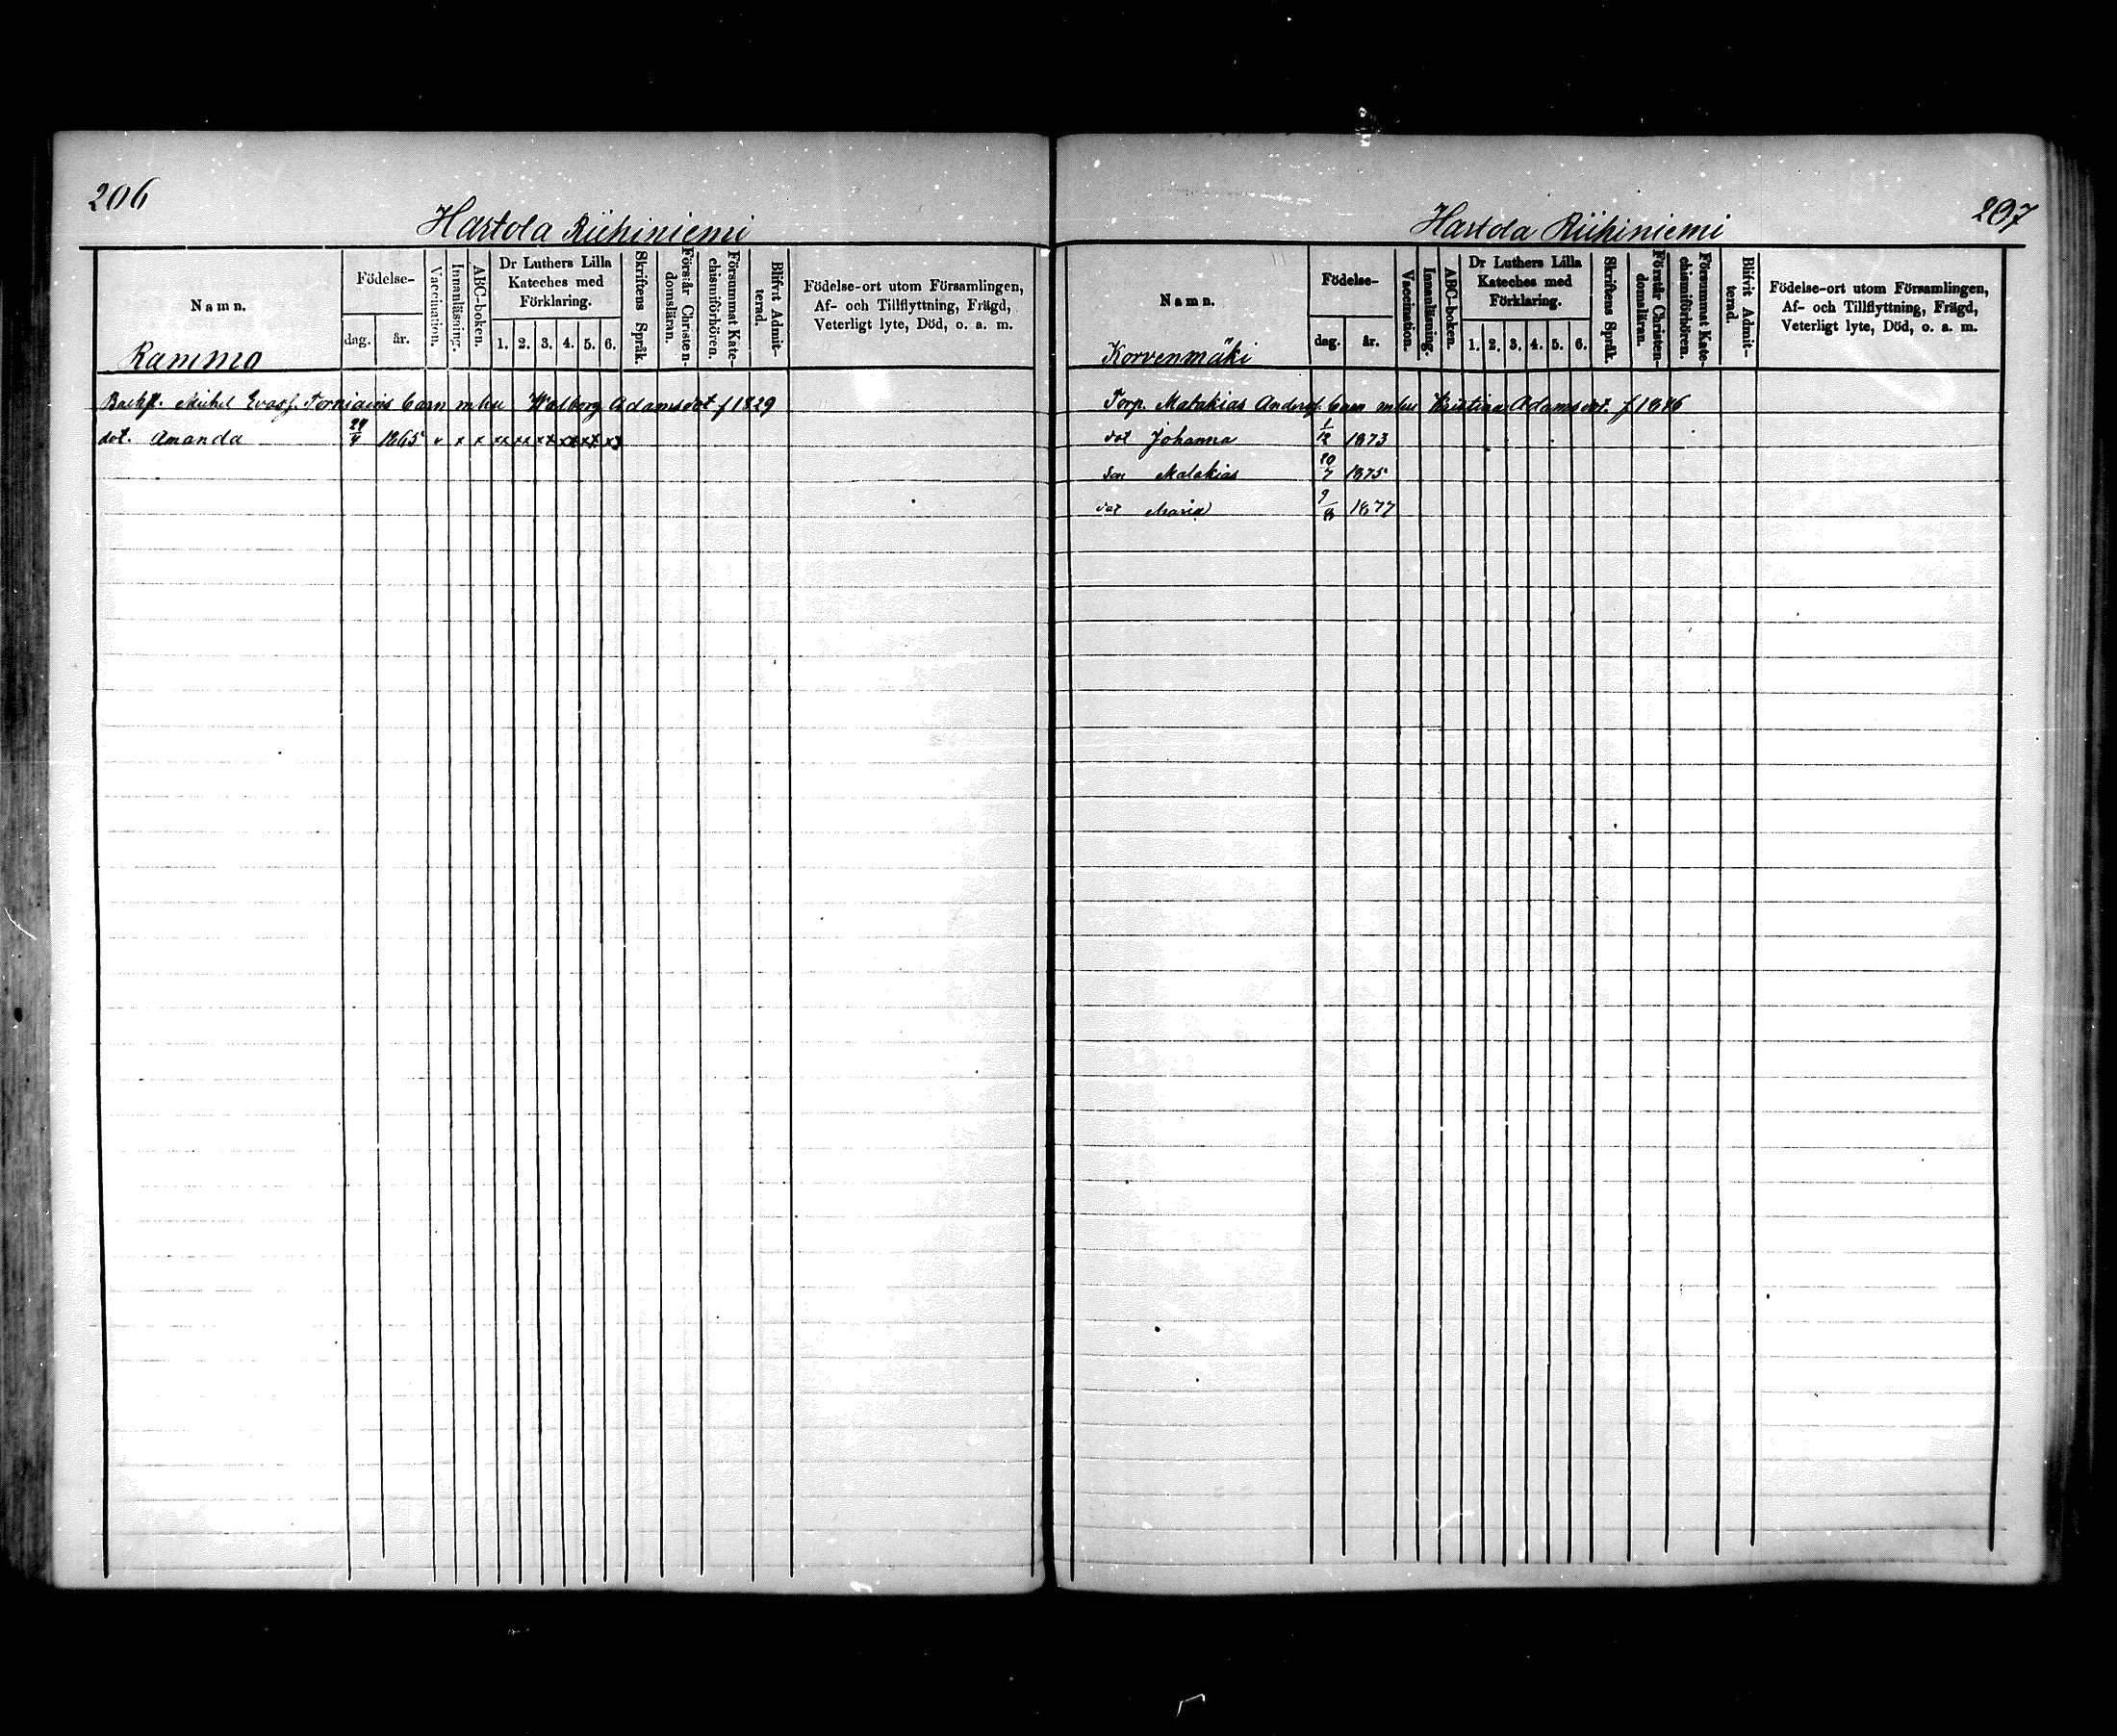 206
Hartola Riihiniemi
Namn.
Födelse-
dag.
år.
Vaccination.
Innanläsning.
ABC-boken.
Dr Luthers Lilla
Kateches med
Förklaring.
1. 2. 3. 4. 5. 6.
Skriftens Språk.
Förstår Christen-
domsläran.
Försummat Kate-
chismiförhören.
Blifvit Admit-
terad.
Födelse-ort utom Församlingen,
Af- och Tillflyttning, Frägd,
Veterligt lyte, Död, o. a. m.
Rammo
Backst. Michel Evasf. Torniainis barn m hu Walborg Adamsdot f 1829
dot. Amanda 1865 v x x xx xx xx xx xx
207
Hartola Riihiniemi
Namn.
Födelse-
dag.
år.
Vaccination.
Innanläsning.
ABC-boken.
Dr Luthers Lilla
Kateches med
Förklaring.
1. 2. 3. 4. 5. 6.
Skriftens Språk.
Förstår Christen-
domsläran.
Försummat Kate-
chismiförhören.
Blifvit Admit-
terad.
Födelse-ort utom Församlingen,
Af- och Tillflyttning, Frägd,
Veterligt lyte, Död, o. a. m.
Korvenmäki
Torp. Malakias Andersf. barn m hu Kristina Adamsdot. f 1846
dot Johanna 1/12 1873
Son Malakias 20/7 1875
dot Maria 9/8 1877